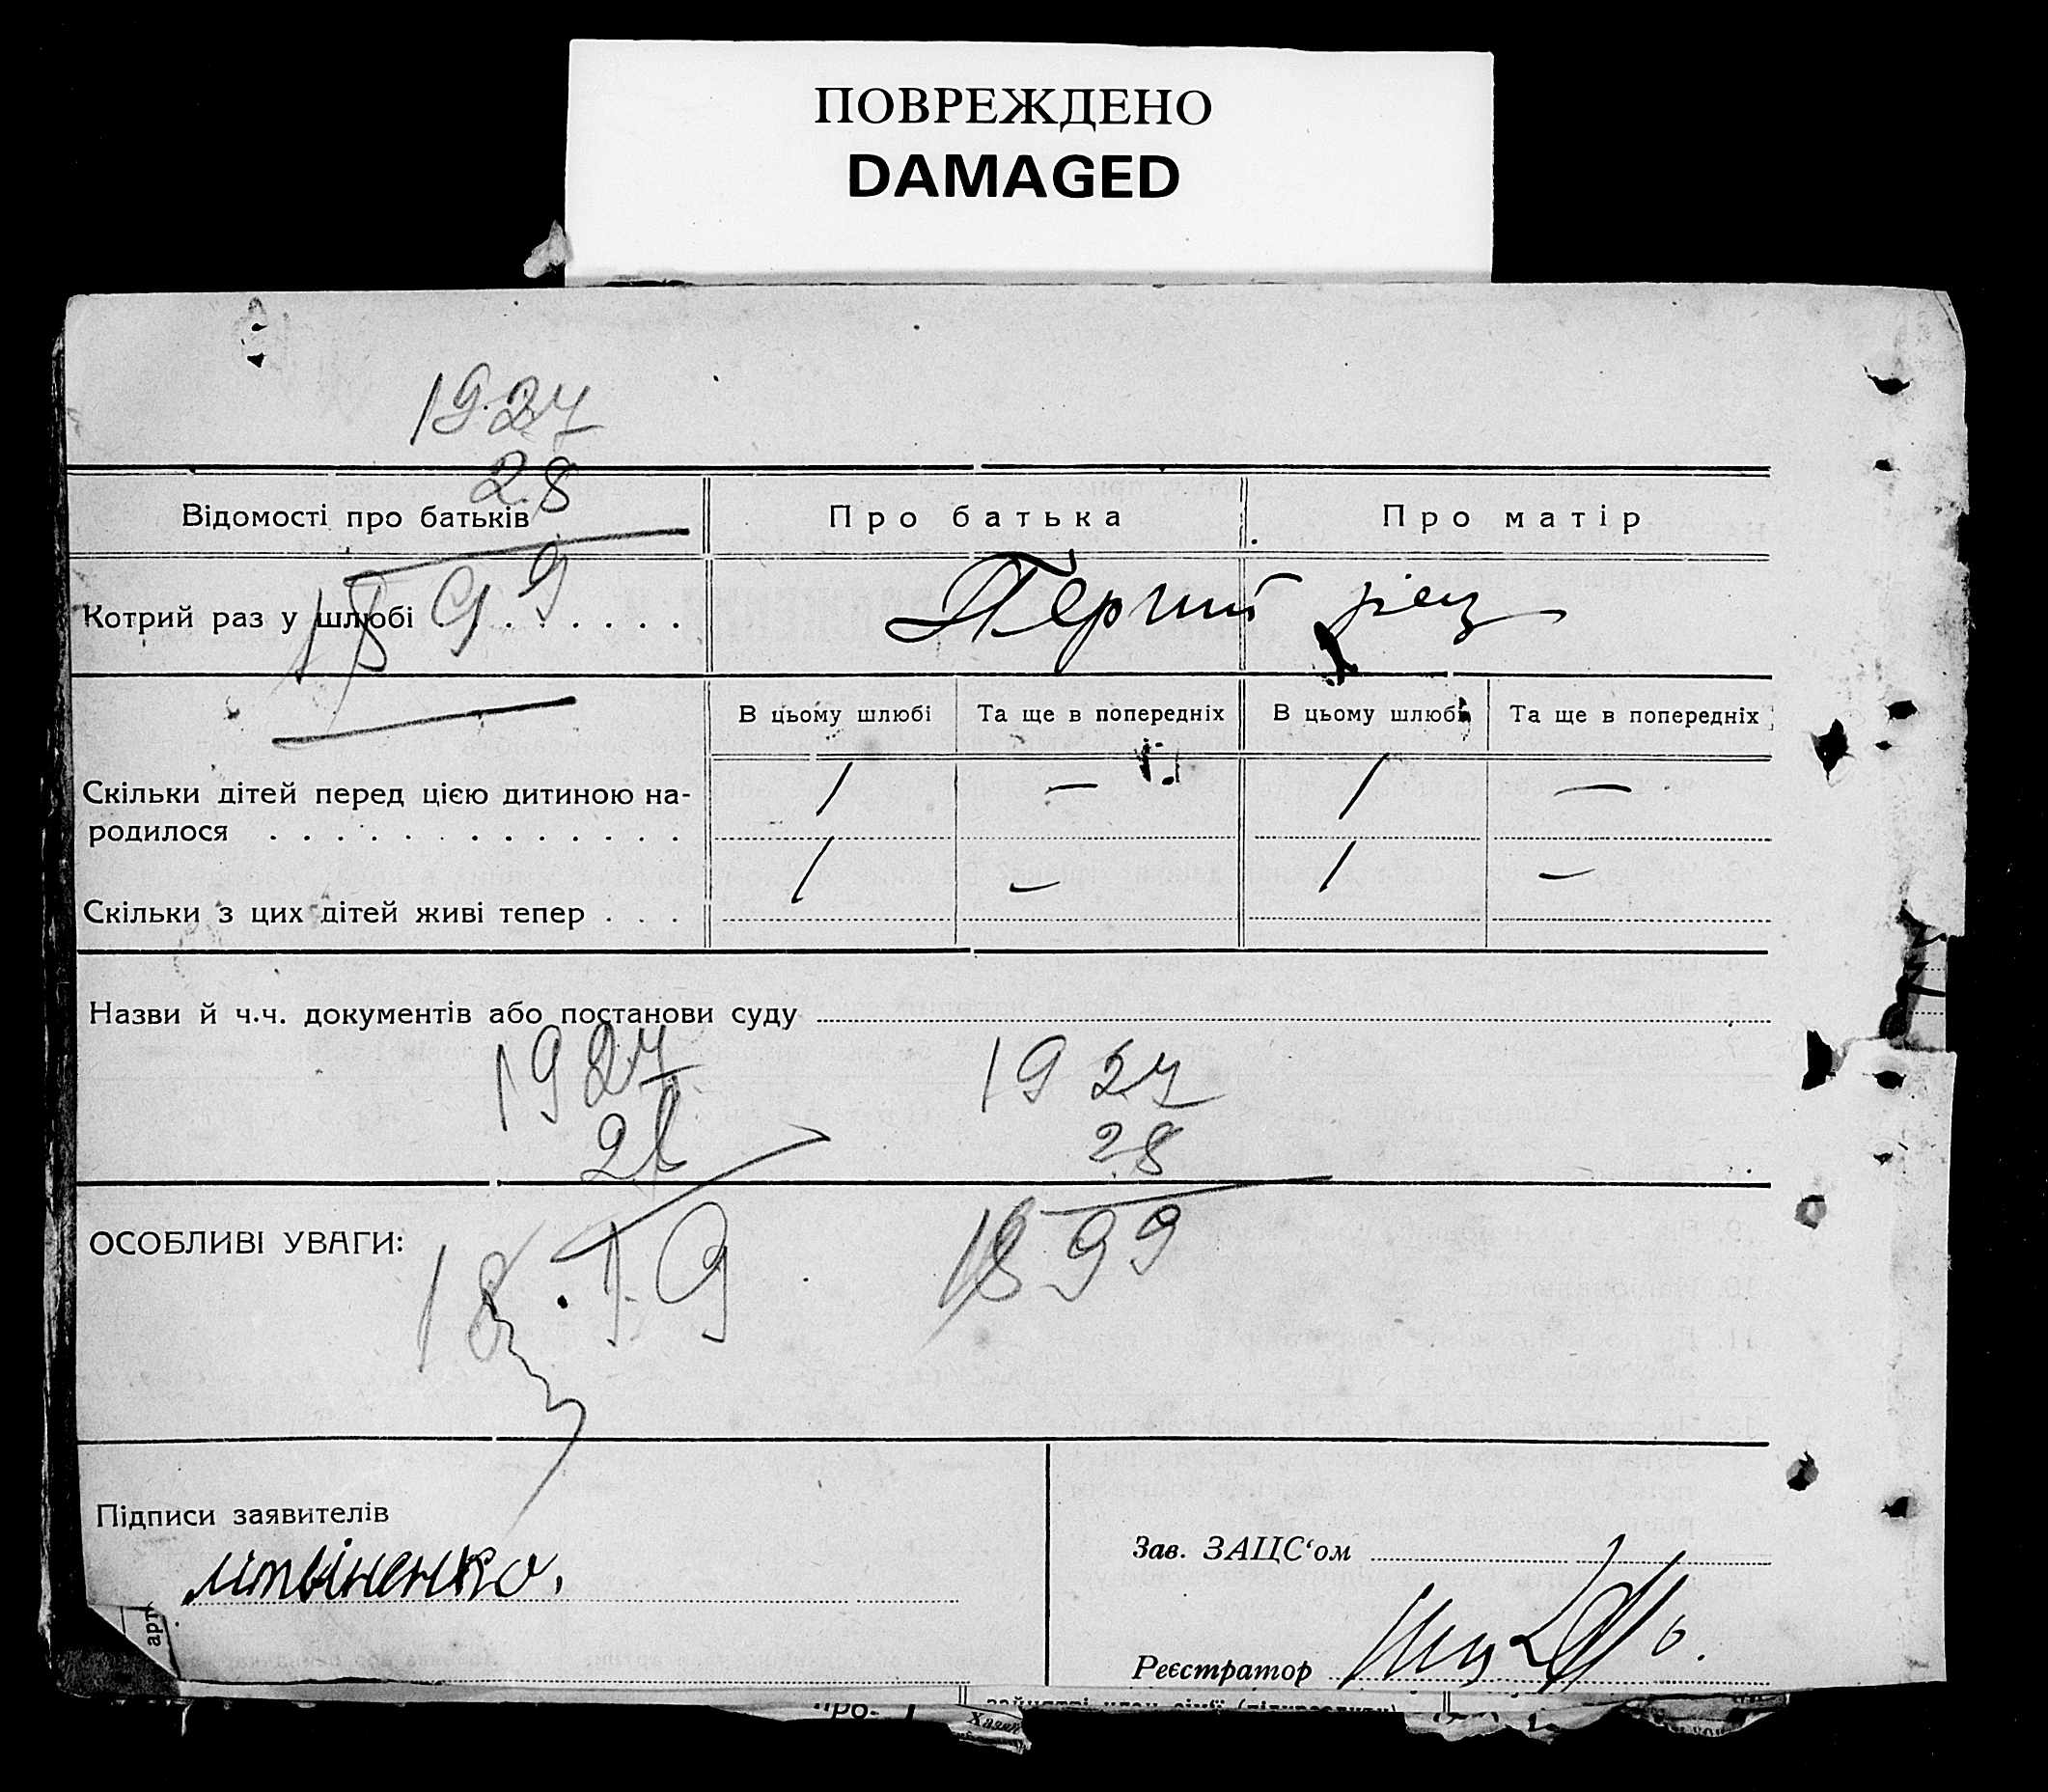 ПОВРЕЖДЕНО
DAMAGED
1927
28
1899
Відомості про батьків
Про батька
Про матір
Котрий раз у шлюбі . . . . . . .
Перший раз
В цьому шлюбі
Та ще в попередніх
В цьому шлюбі
Та ще в попередніх
Скільки дітей перед цією дитиною на-
родилося . . . . . . . . . . . . .
1 — 1 —
Скільки з цих дітей живі тепер . . .
1 — 1 —
Назви й ч.ч. документів або постанови суду
1927
1927
28
28
ОСОБЛИВІ УВАГИ:
1899
Підписи заявителів
Літвіненко.
Зав. ЗАЦС‘ом
Реєстратор